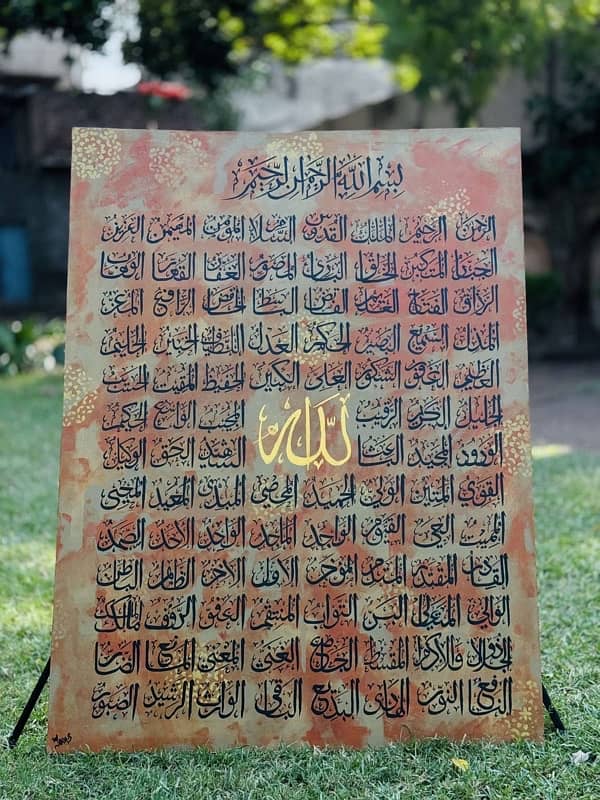 بسم الله الرحمن الرحيم
الرحمن الرحيم الملك القدوس السلام المؤمن المهيمن العزيز
الجبار المتكبر الخالق البارئ المصور الغفار القهار الوهاب
الرزاق الفتاح العليم القابض الباسط الخافض الرافع المعز
المذل السميع البصير الحكم العدل اللطيف الخبير الحليم
العظيم الغفور الشكور العلي الكبير الحفيظ المقيت الحسيب
الجليل الكريم الرقيب المجيب الواسع الحكيم
الله
الودود المجيد الباعث الشهيد الحق الوكيل
القوي المتين الولي الحميد المحصي المبدئ المعيد المحيي
المميت الحي القيوم الواجد الماجد الواحد الاحد الصمد
القادر المقتدر المقدم المؤخر الاول الاخر الظاهر الباطن
الوالي المتعالي البر التواب المنتقم العفو الرءوف مالك الملك
ذو الجلال والاكرام المقسط الجامع الغني المغني المانع الضار
النافع النور الهادي البديع الباقي الوارث الرشيد الصبور